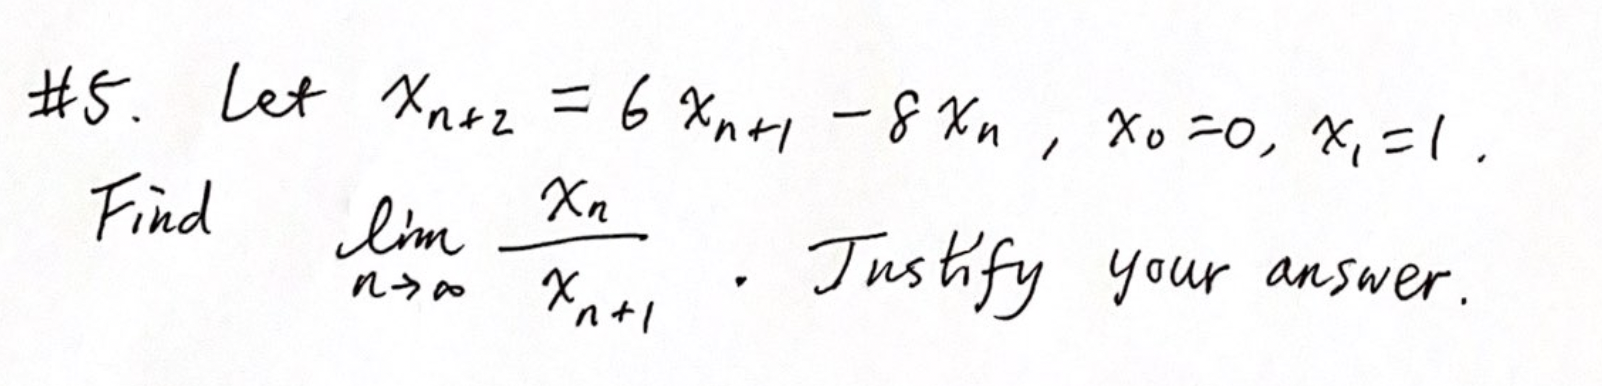 #5. Let xₙ₊₂ = 6 xₙ₊₁ - 8 xₙ , x₀ = 0, x₁ = 1 .
Find lim n→∞ xₙ / xₙ₊₁ . Justify your answer.